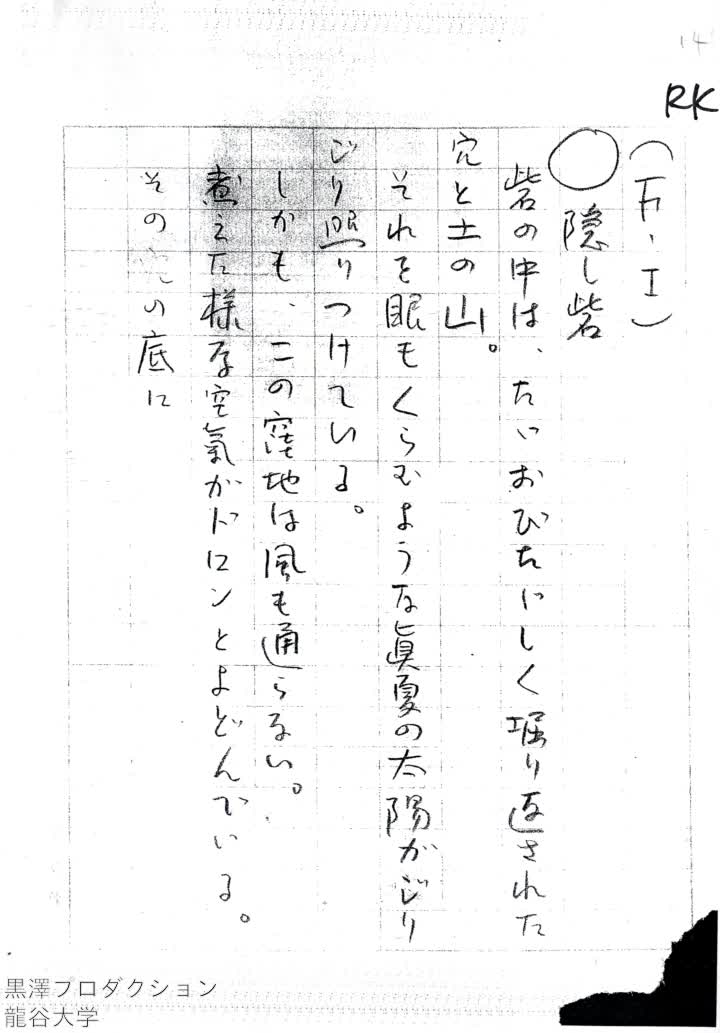 14
RK
(F・I)
◯ 隠し砦
砦の中は、たゞおびたゞしく堀り返された
穴と土の山。
それを眼もくらむような眞夏の太陽がじり
じり照りつけている。
しかも、この窪地は風も通らない。
煮えた様な空氣がドロンとよどんでいる。
その の底に
黒澤プロダクション
龍谷大学